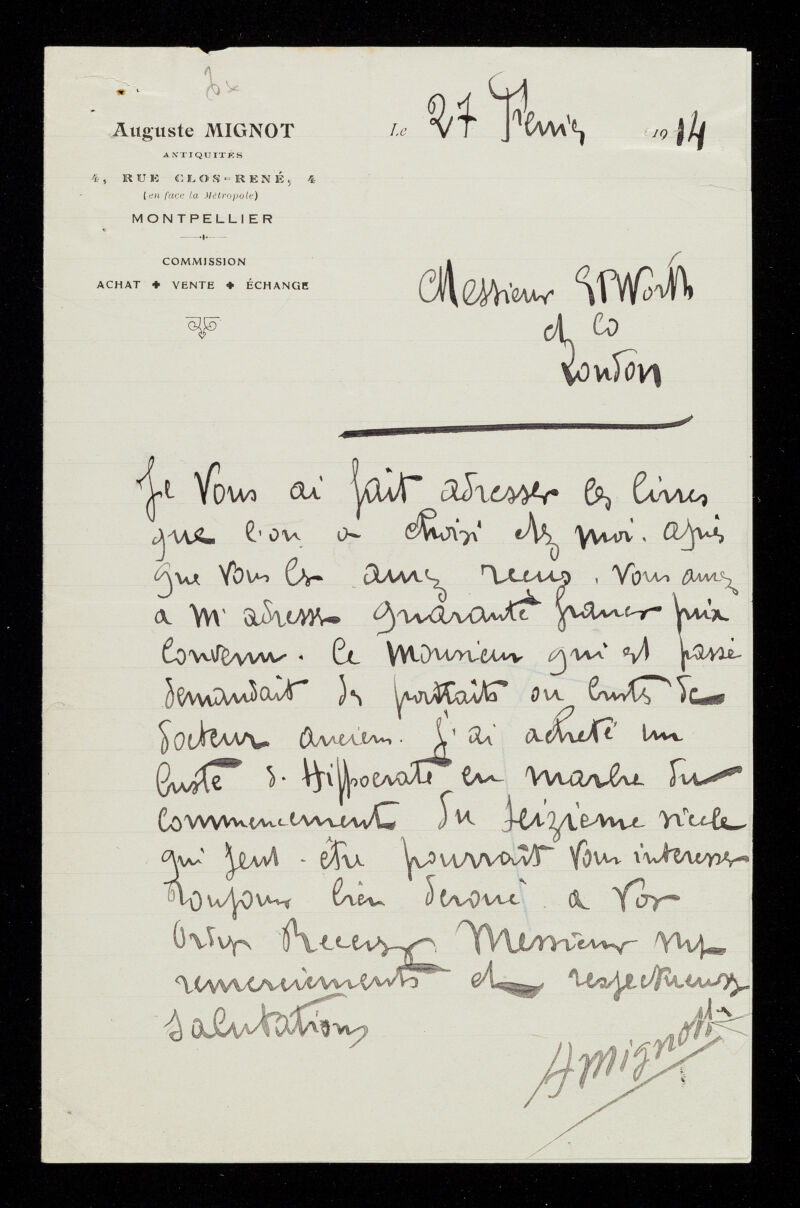 Auguste MIGNOT
ANTIQUITÉS
4, RUE CLOS-RENÉ, 4
(en face la Métropole)
MONTPELLIER
COMMISSION
ACHAT ✦ VENTE ✦ ÉCHANGE
Le 27 Fevrier 1914
Messieur Worth
et Co
London
Je Vous ai fait adresser les livres
que l'on a choisi chez moi. après
que Vous les aurez reçus. Vous aurez
a m'adresser quarante francs prix
convenu. Ce Monsieur qui est passé
demandait des portraits ou bustes de
docteur anciens. J'ai acheté un
buste d'Hippocrate en marbre du
commencement du seizième siècle
qui peut-être pourrait Vous interesser
Toujours bien dévoué a Vos
Ordres Recevez Messieurs mes
remerciements et respectueuses
Salutations
AMignot